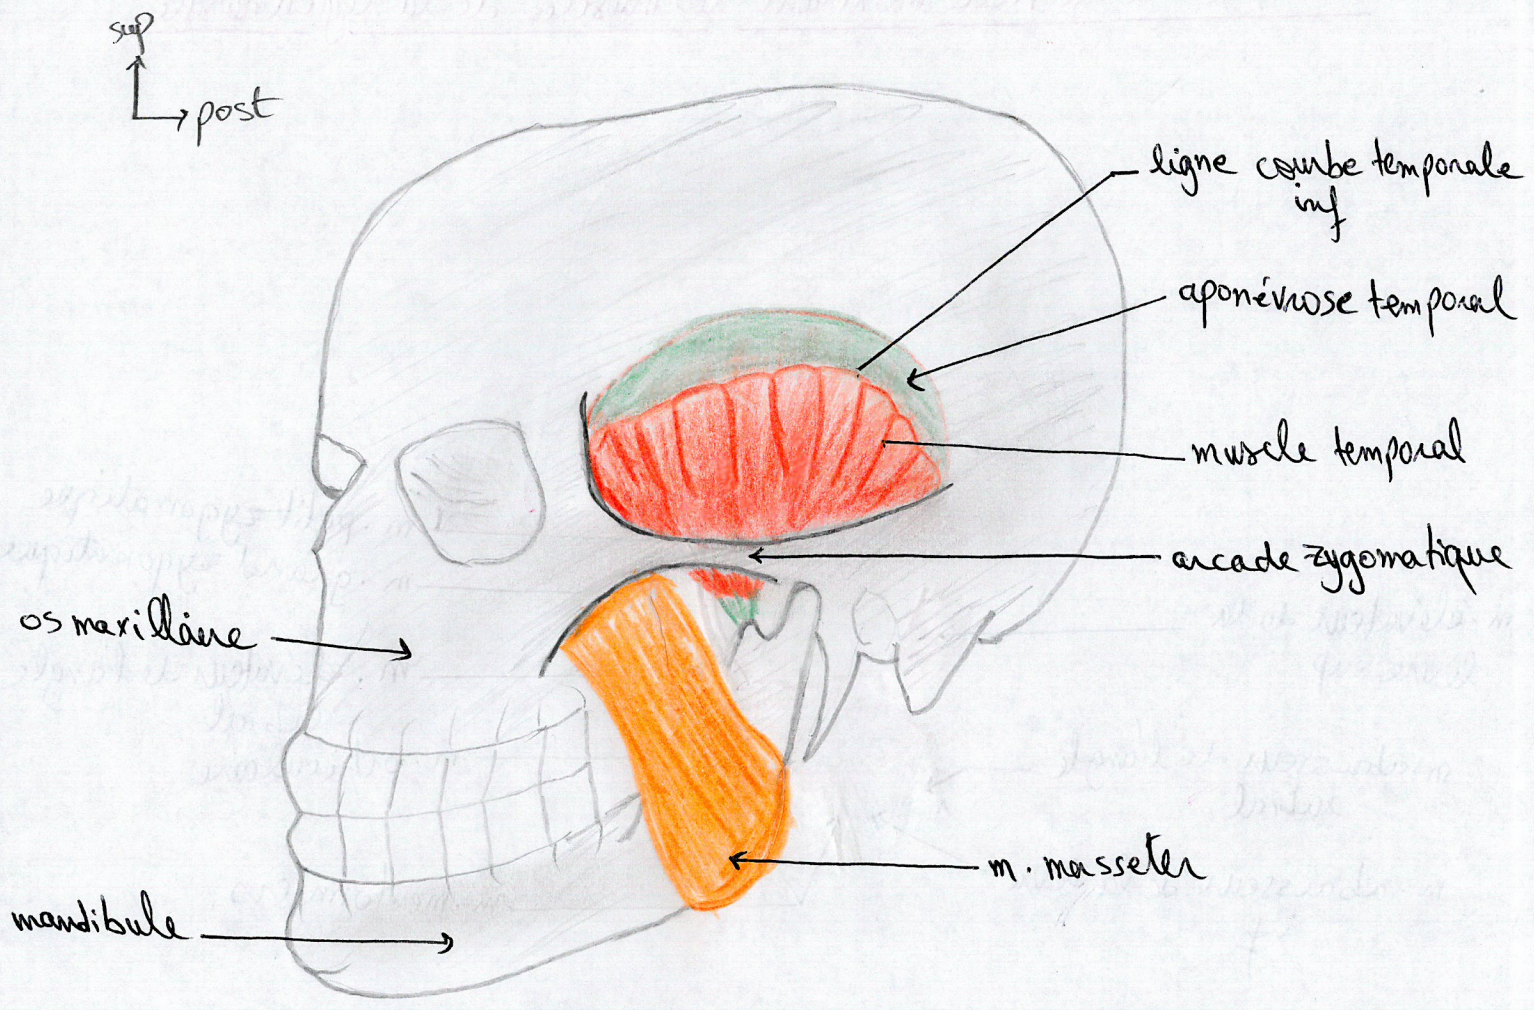 sup
post
ligne courbe temporale
inf
aponévrose temporal
muscle temporal
arcade zygomatique
os maxillaire
m. masseter
mandibule